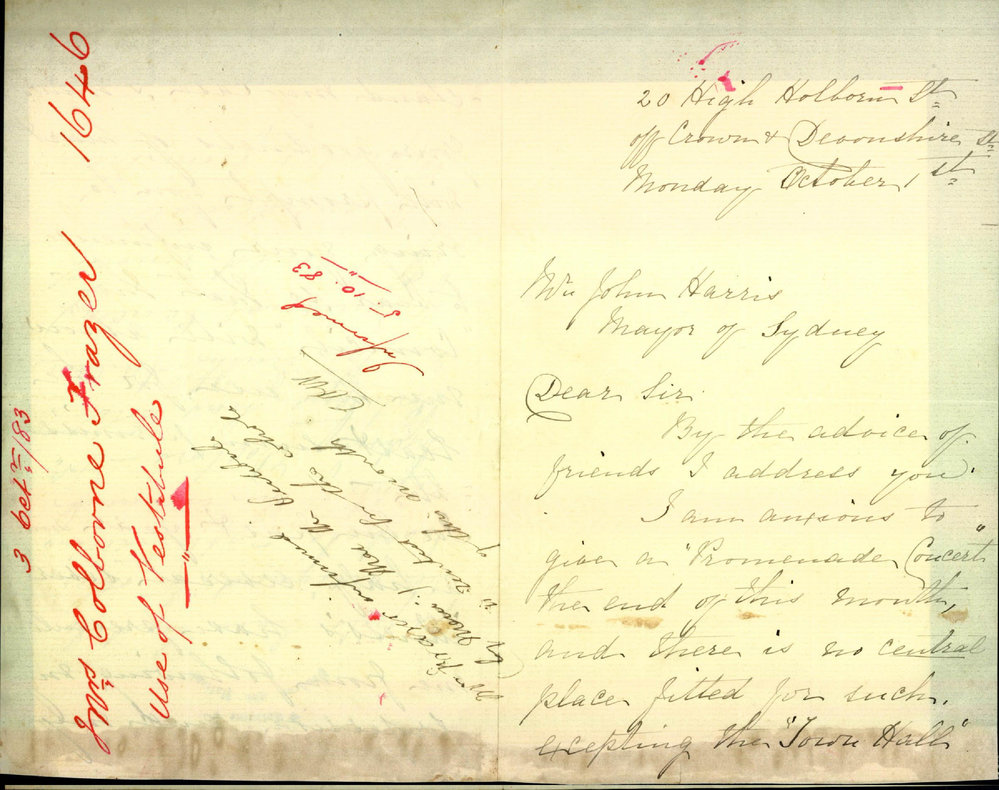 1646
Mrs Colborne Frazer
Use of Vestibule
3 Octr/83
Mrs Frazer informed
by Mayor that the Vestibule
is for the whole
of this month
Informed
5.10.83
20 High Holborn St
off Crown & Devonshire St
Monday October 1st
Mr John Harris
Mayor of Sydney
Dear Sir
By the advice of
friends I address you.
I am anxious to
give a "Promenade Concert"
the end of this month,
and there is no central
place fitted for such.
excepting the "Town Hall"